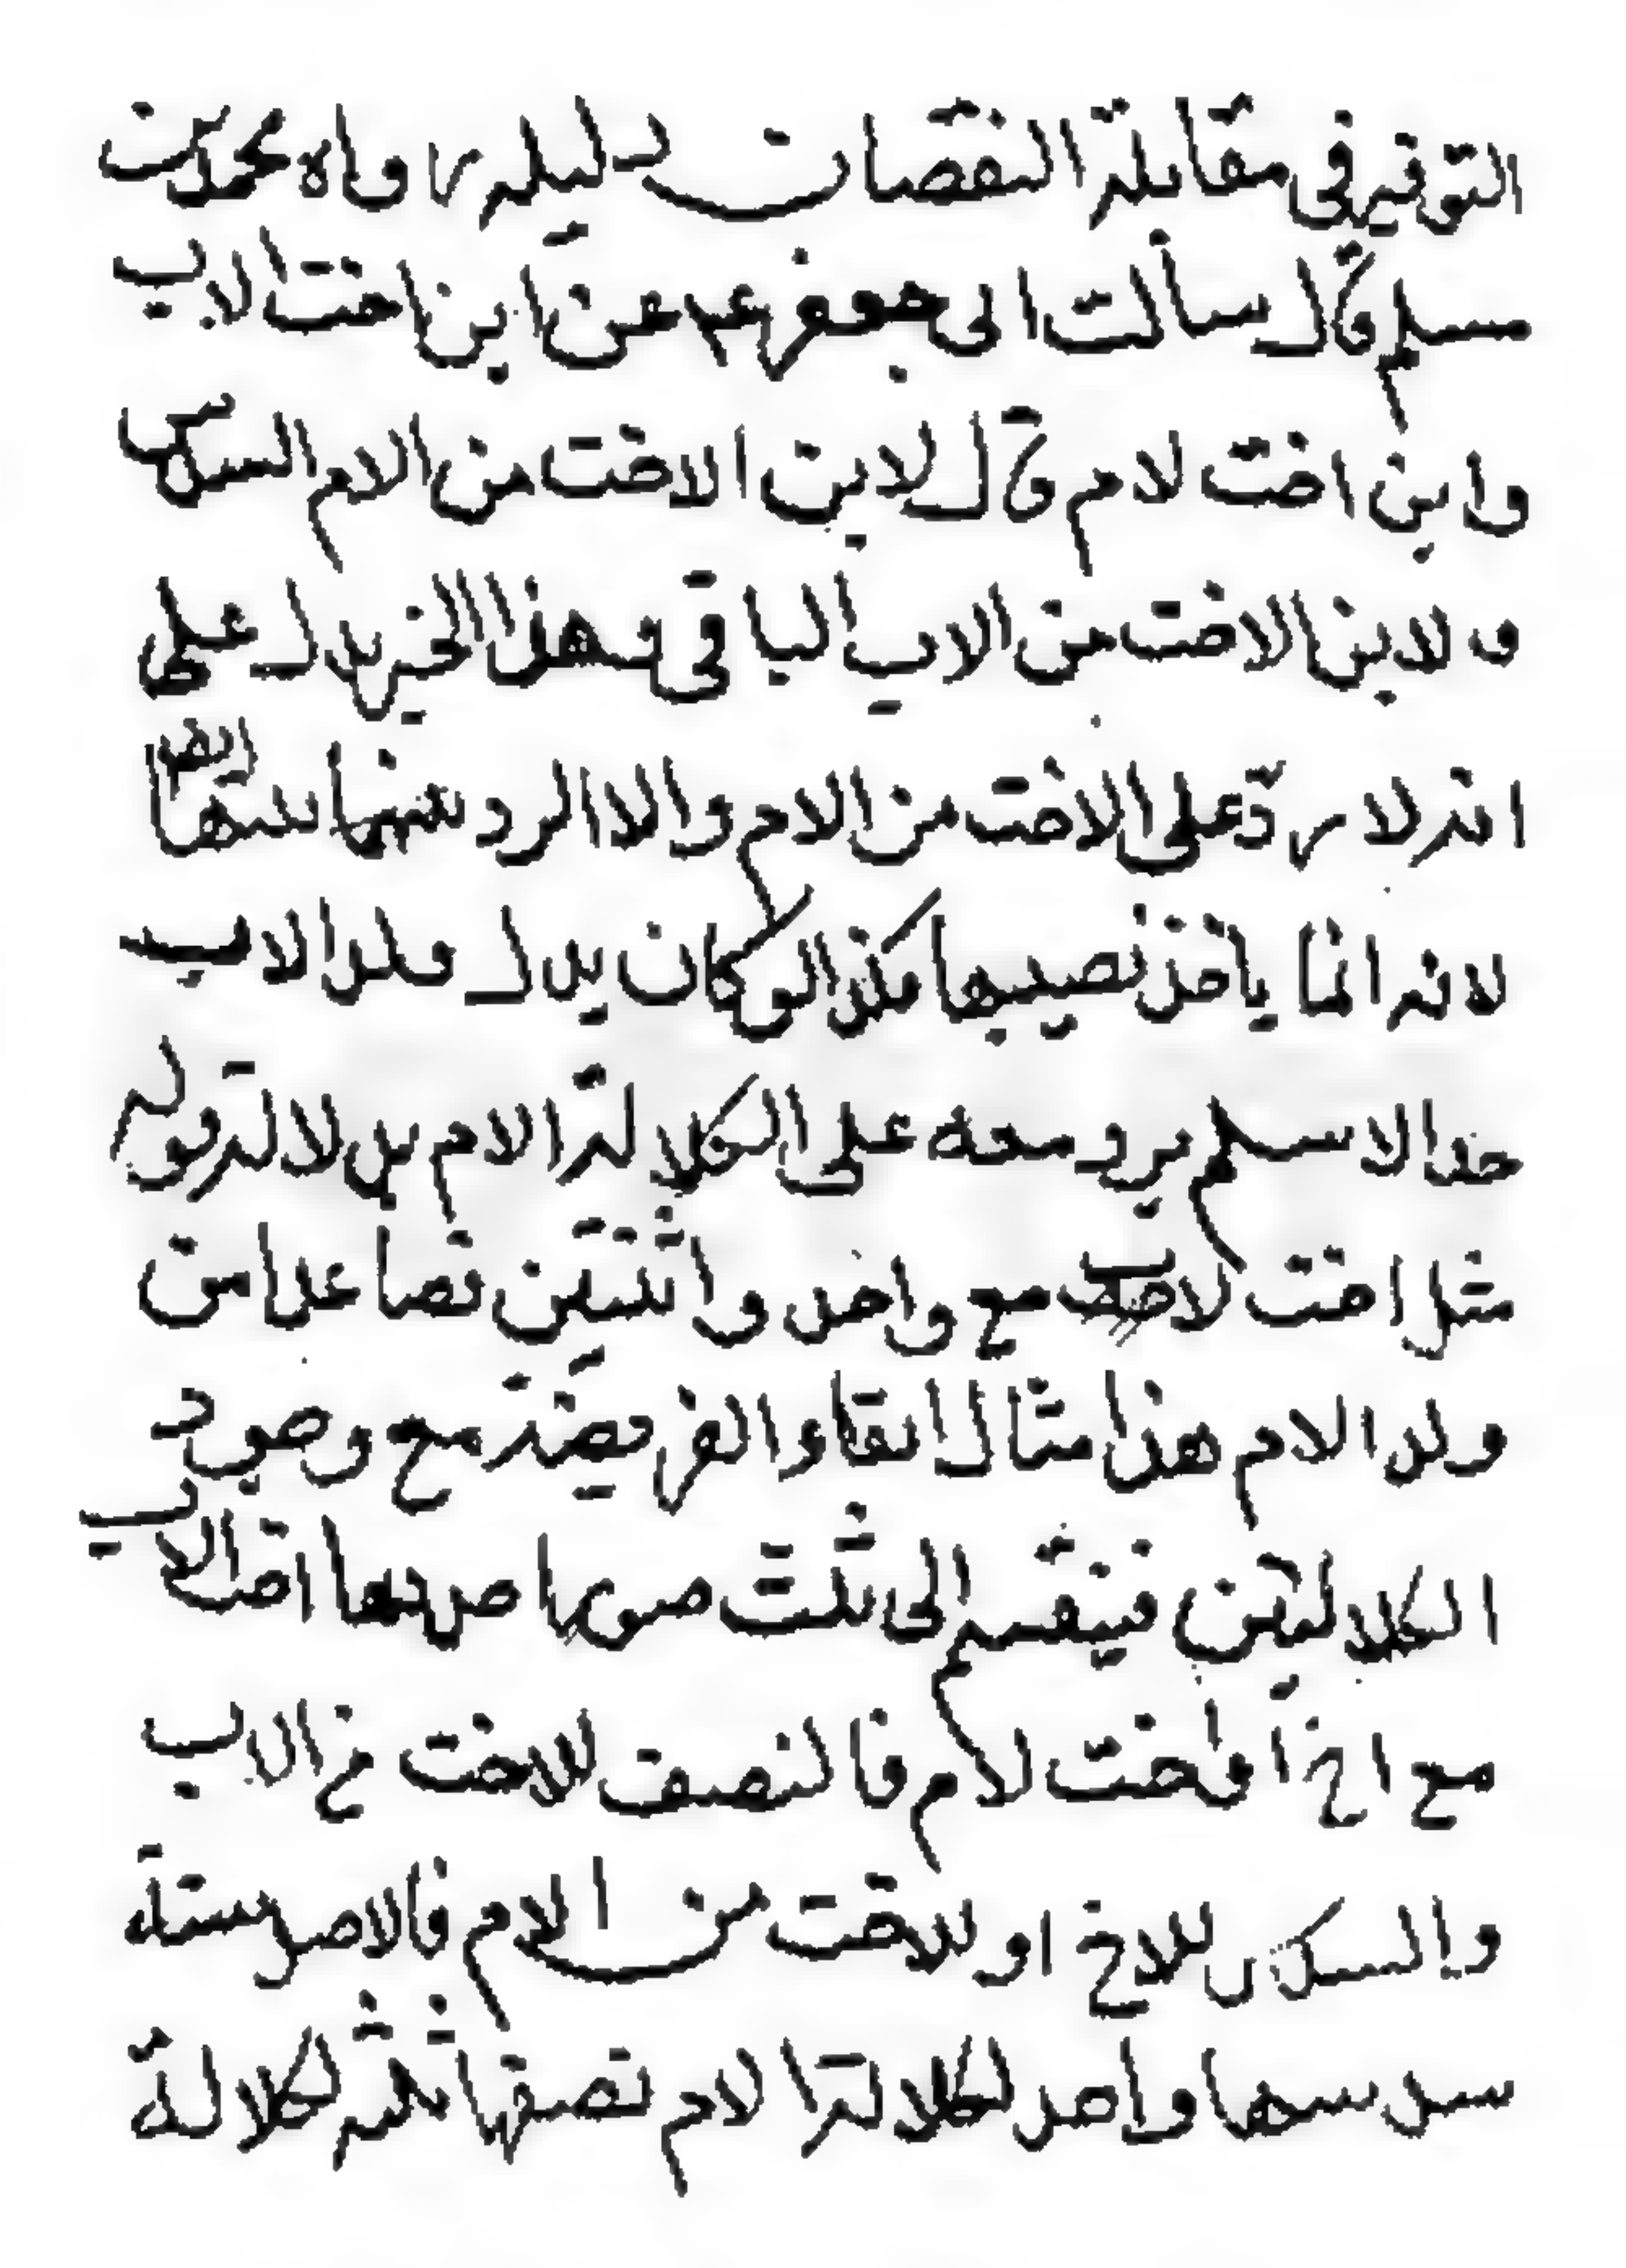 التوفير في مقابلة النقصان دليله رواه محمد بن
مسلم قال سألت ابى جعفر عم عن ابن اخت الاب
وابن اخت لام قال لابن الاخت من الام السدس
و لابن الاخت من الاب الباقى وهذا الخبر يدل على
انه لا ردّ على الاخت من الام والا الرد بينهما
لانه انما ياخذ نصيبها هكذا لو كان يدل ولد الاب
حدا لا سهم يرد معه على الكلالة الام بل لا لقوله
مثل اخت لاب مع واحد واثنتين فصاعدا من
ولد الام هذا مثال ابقاء الفريضة مع وجود
الكلالتين فينقسم الى ثلث صور احديها اخت الاب
مع اخ او اخت لام فالنصف للاخت من الاب
والسدس للاخ او للاخت من الام فالاصل ستة
سدسها واحد لكلالة الام نصفها ثلثه لكلالة